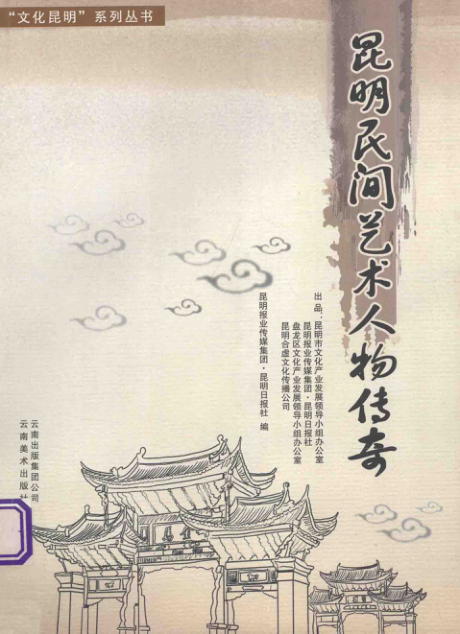 “文化昆明”系列丛书
昆明民间艺术人物传奇
出品：昆明市文化产业发展领导小组办公室
昆明报业传媒集团·昆明日报社
盘龙区文化产业发展领导小组办公室
昆明合虚文化传播公司
昆明报业传媒集团·昆明日报社 编
云南出版集团公司
云南美术出版社